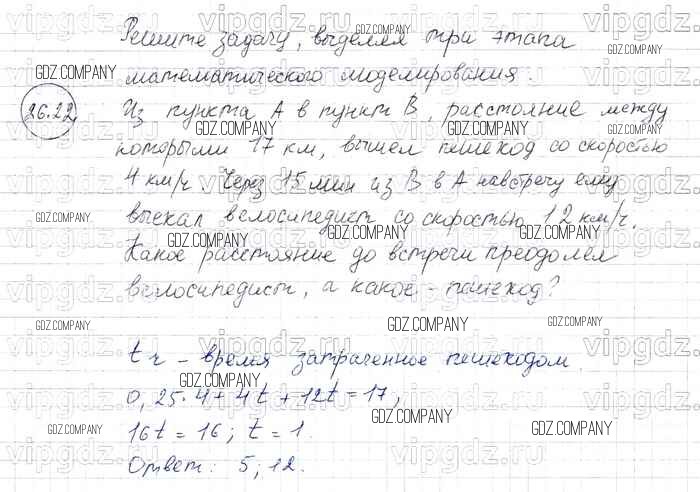 Решите задачу, выделяя три этапа
математического моделирования.
26.22 Из пункта A в пункт B, расстояние между
которыми 17 км, вышел пешеход со скоростью
4 км/ч. Через 15 мин из B в A навстречу ему
выехал велосипедист со скоростью 12 км/ч.
Какое расстояние до встречи преодолел
велосипедист, а какое - пешеход?
t ч - время затраченное пешеходом.
0,25·4+4t+12t=17,
16t=16; t=1.
Ответ: 5; 12.